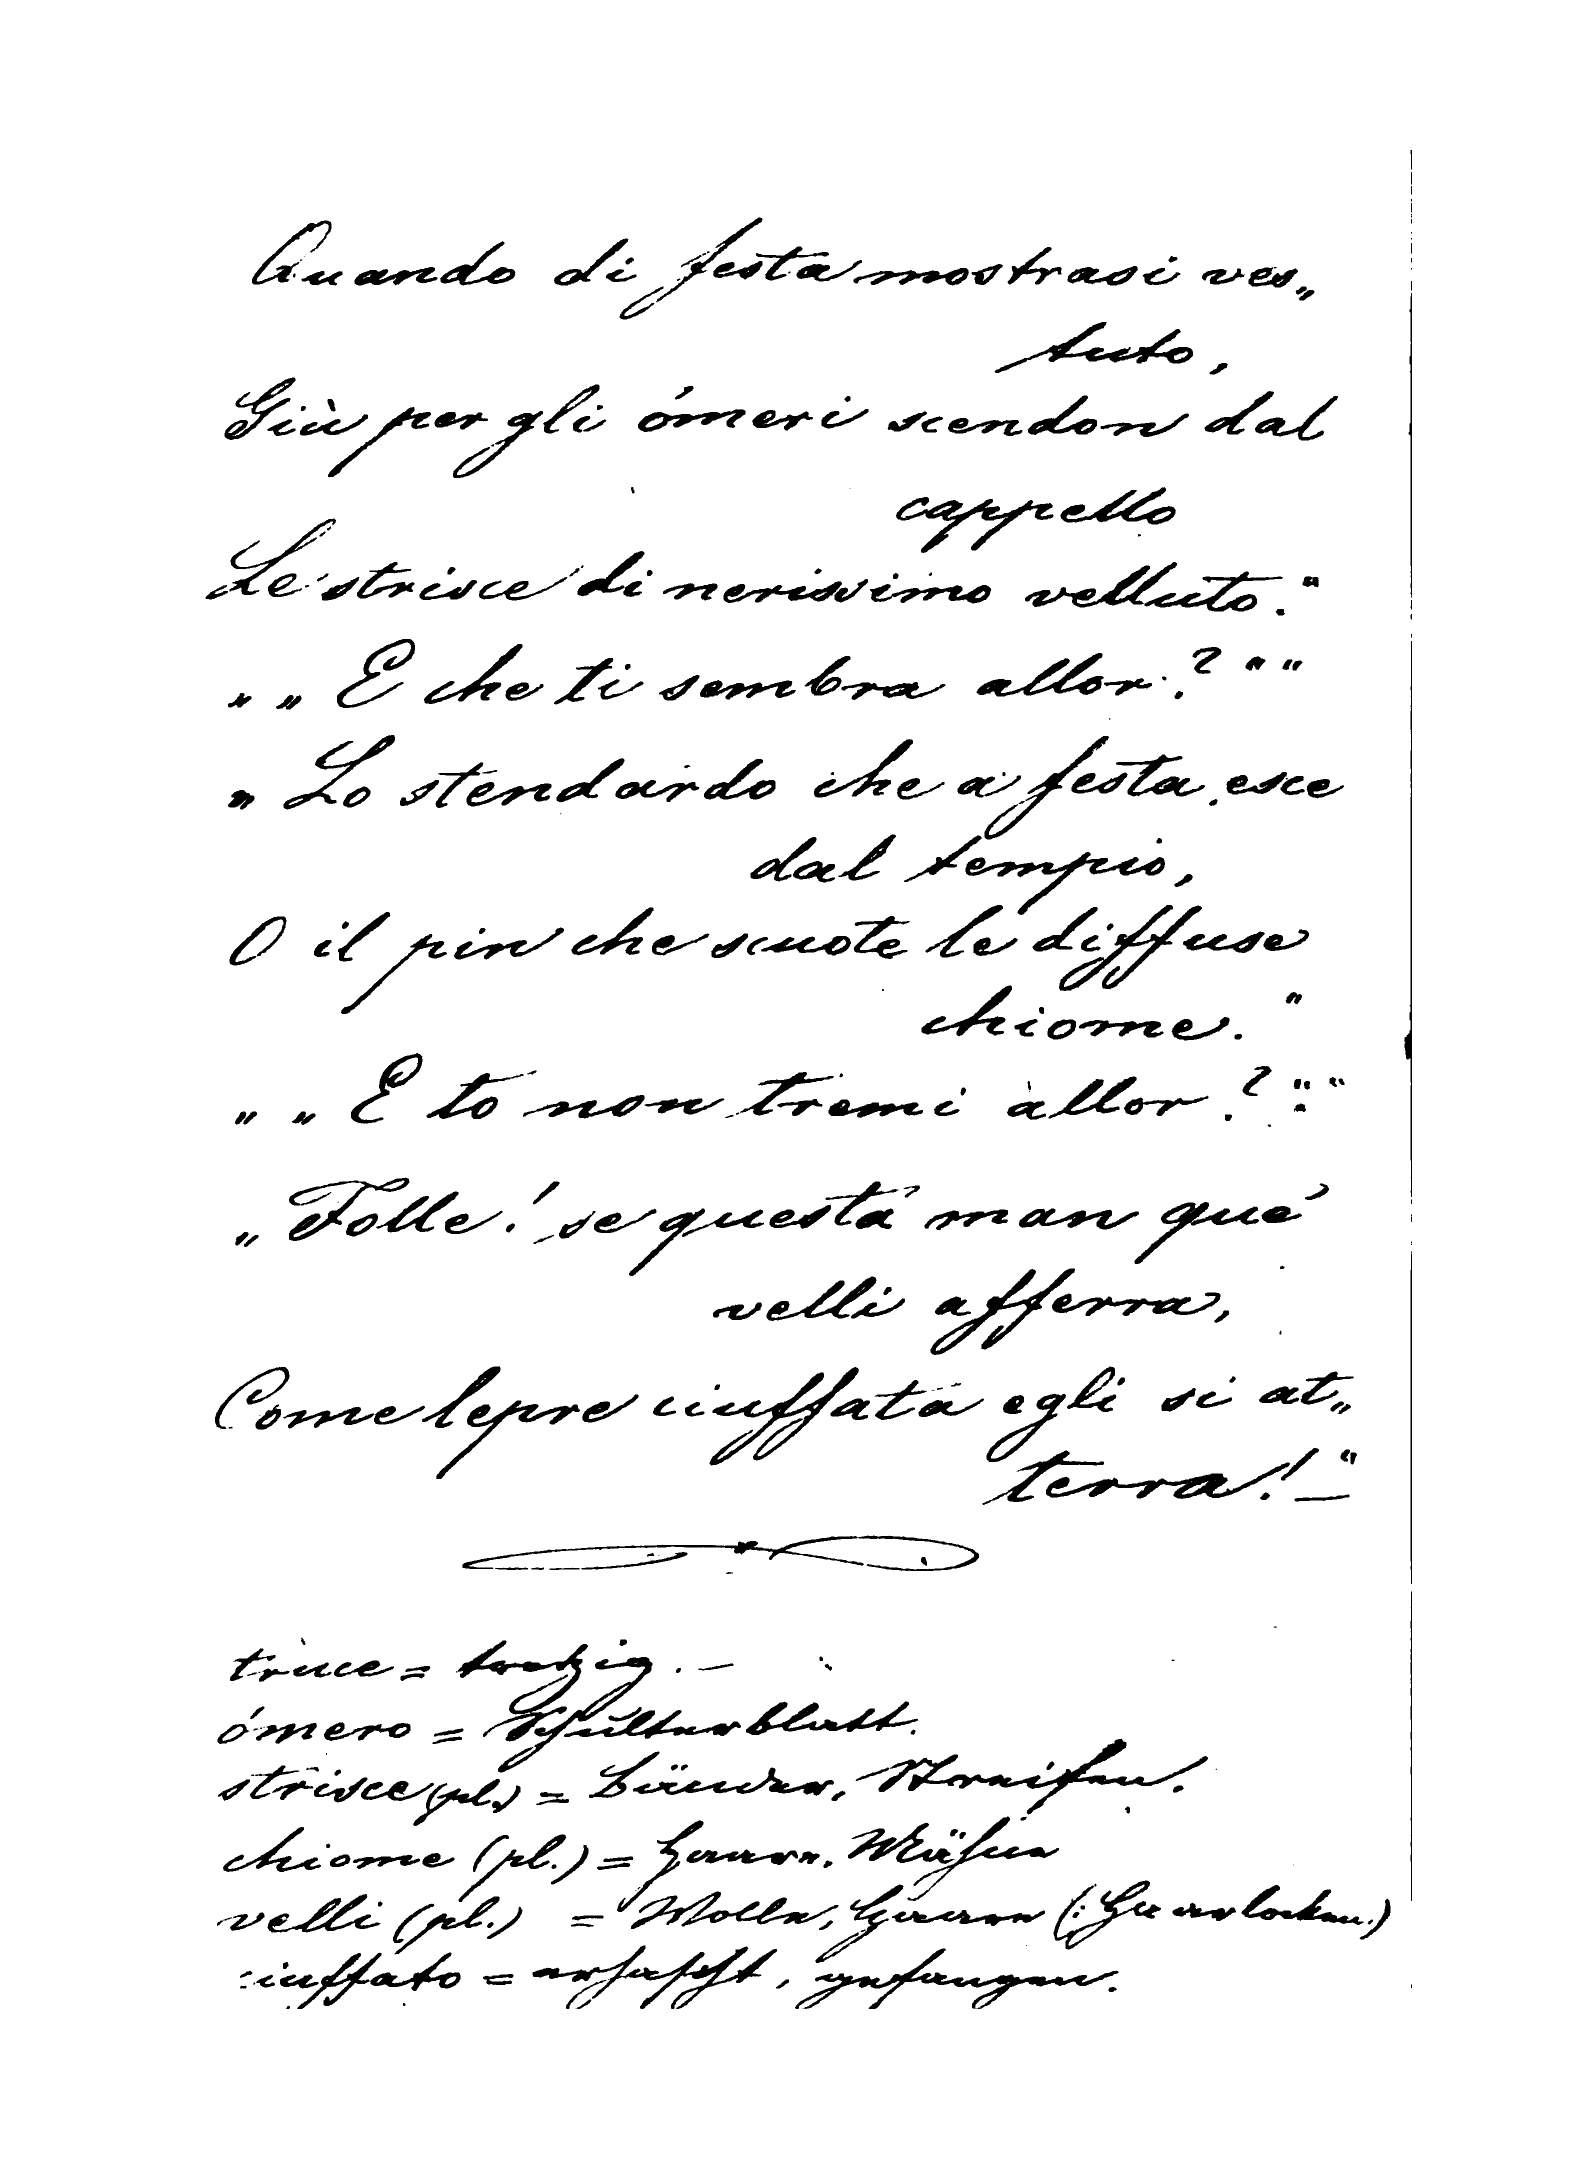 Quando di festa mostrasi ves„
tuto,
Giù per gli ómeri scendon dal
cappello
Le strisce di nerissimo velluto."
„ „ E che ti sembra allor? " "
„ Lo stendardo che a festa esce
dal tempio,
O il pin che scuote le diffuse
chiome."
„ „ E to non tremi allor? " "
„ Folle! se questa man que'
velli afferra,
Come lepre ciuffata egli si at„
terra! "—
truce = trotzig. —
ómero = Schulterblatt.
strisce (pl.) = Bänder, Streifen.
chiome (pl.) = Haare, Mähne
velli (pl.) = Wolle, Haare (: Haarlocken.)
ciuffato = erhascht, gefangen.